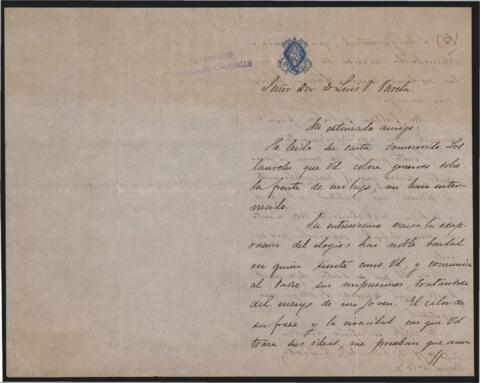 (B)
Señor Dor D. Luis V. Varela
Mi estimado amigo:
He leido su carta conmovido. Los
laureles que Vd coloca generoso sobre
la frente de mi hijo, me han enter-
necido.
Su entusiasmo escusa la exage-
racion del elogio: hai noble bondad
en quien siente como Vd, y comunica
al Padre sus impresiones, tratandose
del ensayo de un joven. El calor de
su frase y la vivacidad con que Vd
traza sus ideas, me prueban que ama